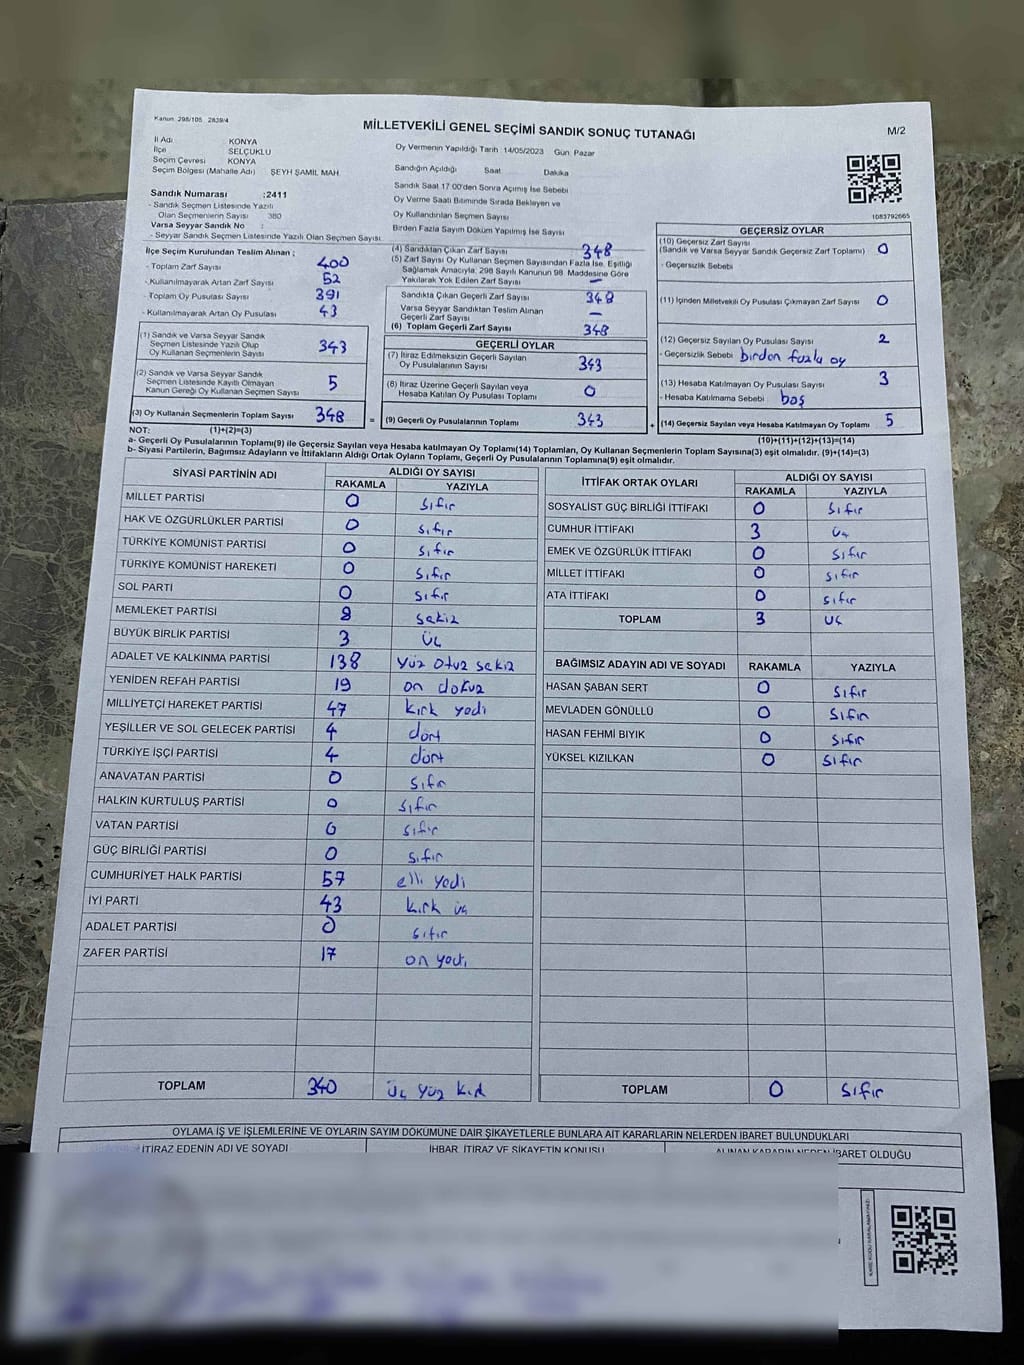 Kanun 298/105 2839/4
MİLLETVEKİLİ GENEL SEÇİMİ SANDIK SONUÇ TUTANAĞI
M/2
İl Adı KONYA
İlçe SELÇUKLU
Seçim Çevresi KONYA
Seçim Bölgesi (Mahalle Adı) ŞEYH ŞAMİL MAH.
Sandık Numarası :2411
- Sandık Seçmen Listesinde Yazılı
Olan Seçmenlerin Sayısı 380
Varsa Seyyar Sandık No :
- Seyyar Sandık Seçmen Listesinde Yazılı Olan Seçmen Sayısı
Oy Vermenin Yapıldığı Tarih :14/05/2023 Gün: Pazar
Sandığın Açıldığı Saat Dakika
Sandık Saat 17:00'den Sonra Açımış İse Sebebi
Oy Verme Saati Bitiminde Sırada Bekleyen ve
Oy Kullandırılan Seçmen Sayısı
Birden Fazla Sayım Döküm Yapılmış İse Sayısı
1083792665
İlçe Seçim Kurulundan Teslim Alınan ;
- Toplam Zarf Sayısı 400
- Kullanılmayarak Artan Zarf Sayısı 52
- Toplam Oy Pusulası Sayısı 391
- Kullanılmayarak Artan Oy Pusulası 43
(1) Sandık ve Varsa Seyyar Sandık
Seçmen Listesinde Yazılı Olup
Oy Kullanan Seçmenlerin Sayısı 343
(2) Sandık ve Varsa Seyyar Sandık
Seçmen Listesinde Kayıtlı Olmayan
Kanun Gereği Oy Kullanan Seçmen Sayısı 5
(3) Oy Kullanan Seçmenlerin Toplam Sayısı 348 =
(4) Sandıktan Çıkan Zarf Sayısı 348
(5) Zarf Sayısı Oy Kullanan Seçmen Sayısından Fazla İse, Eşitliği
Sağlamak Amacıyla, 298 Sayılı Kanunun 98. Maddesine Göre
Yakılarak Yok Edilen Zarf Sayısı —
Sandıkta Çıkan Geçerli Zarf Sayısı 348
Varsa Seyyar Sandıktan Teslim Alınan
Geçerli Zarf Sayısı —
(6) Toplam Geçerli Zarf Sayısı 348
GEÇERLİ OYLAR
(7) İtiraz Edilmeksizin Geçerli Sayılan
Oy Pusulalarının Sayısı 343
(8) İtiraz Üzerine Geçerli Sayılan veya
Hesaba Katılan Oy Pusulası Toplamı 0
(9) Geçerli Oy Pusulalarının Toplamı 343 +
GEÇERSİZ OYLAR
(10) Geçersiz Zarf Sayısı
(Sandık ve Varsa Seyyar Sandık Geçersiz Zarf Toplamı) 0
- Geçersizlik Sebebi
(11) İçinden Milletvekili Oy Pusulası Çıkmayan Zarf Sayısı 0
(12) Geçersiz Sayılan Oy Pusulası Sayısı 2
- Geçersizlik Sebebi birden fazla oy
(13) Hesaba Katılmayan Oy Pusulası Sayısı 3
- Hesaba Katılmama Sebebi boş
(14) Geçersiz Sayılan veya Hesaba Katılmayan Oy Toplamı 5
NOT: (1)+(2)=(3)
(10)+(11)+(12)+(13)=(14)
a- Geçerli Oy Pusulalarının Toplamı(9) ile Geçersiz Sayılan veya Hesaba katılmayan Oy Toplamı(14) Toplamları, Oy Kullanan Seçmenlerin Toplam Sayısına(3) eşit olmalıdır. (9)+(14)=(3)
b- Siyasi Partilerin, Bağımsız Adayların ve İttifakların Aldığı Ortak Oyların Toplamı, Geçerli Oy Pusulalarının Toplamına(9) eşit olmalıdır.
SİYASİ PARTİNİN ADI ALDIĞI OY SAYISI
RAKAMLA YAZIYLA
MİLLET PARTİSİ 0 sıfır
HAK VE ÖZGÜRLÜKLER PARTİSİ 0 sıfır
TÜRKİYE KOMÜNİST PARTİSİ 0 sıfır
TÜRKİYE KOMÜNİST HAREKETİ 0 sıfır
SOL PARTİ 0 sıfır
MEMLEKET PARTİSİ 8 sekiz
BÜYÜK BİRLİK PARTİSİ 3 üç
ADALET VE KALKINMA PARTİSİ 138 yüz otuz sekiz
YENİDEN REFAH PARTİSİ 19 on dokuz
MİLLİYETÇİ HAREKET PARTİSİ 47 kırk yedi
YEŞİLLER VE SOL GELECEK PARTİSİ 4 dört
TÜRKİYE İŞÇİ PARTİSİ 4 dört
ANAVATAN PARTİSİ 0 sıfır
HALKIN KURTULUŞ PARTİSİ 0 sıfır
VATAN PARTİSİ 0 sıfır
GÜÇ BİRLİĞİ PARTİSİ 0 sıfır
CUMHURİYET HALK PARTİSİ 57 elli yedi
İYİ PARTİ 43 kırk üç
ADALET PARTİSİ 0 sıfır
ZAFER PARTİSİ 17 on yedi
TOPLAM 340 üç yüz kırk
İTTİFAK ORTAK OYLARI ALDIĞI OY SAYISI
RAKAMLA YAZIYLA
SOSYALİST GÜÇ BİRLİĞİ İTTİFAKI 0 sıfır
CUMHUR İTTİFAKI 3 üç
EMEK VE ÖZGÜRLÜK İTTİFAKI 0 sıfır
MİLLET İTTİFAKI 0 sıfır
ATA İTTİFAKI 0 sıfır
TOPLAM 3 üç
BAĞIMSIZ ADAYIN ADI VE SOYADI RAKAMLA YAZIYLA
HASAN ŞABAN SERT 0 sıfır
MEVLADEN GÖNÜLLÜ 0 sıfır
HASAN FEHMİ BIYIK 0 sıfır
YÜKSEL KIZILKAN 0 sıfır
TOPLAM 0 sıfır
OYLAMA İŞ VE İŞLEMLERİNE VE OYLARIN SAYIM DÖKÜMÜNE DAİR ŞİKAYETLERLE BUNLARA AİT KARARLARIN NELERDEN İBARET BULUNDUKLARI
İTİRAZ EDENİN ADI VE SOYADI İHBAR, İTİRAZ VE ŞİKAYETİN KONUSU ALINAN KARARIN NEDEN İBARET OLDUĞU